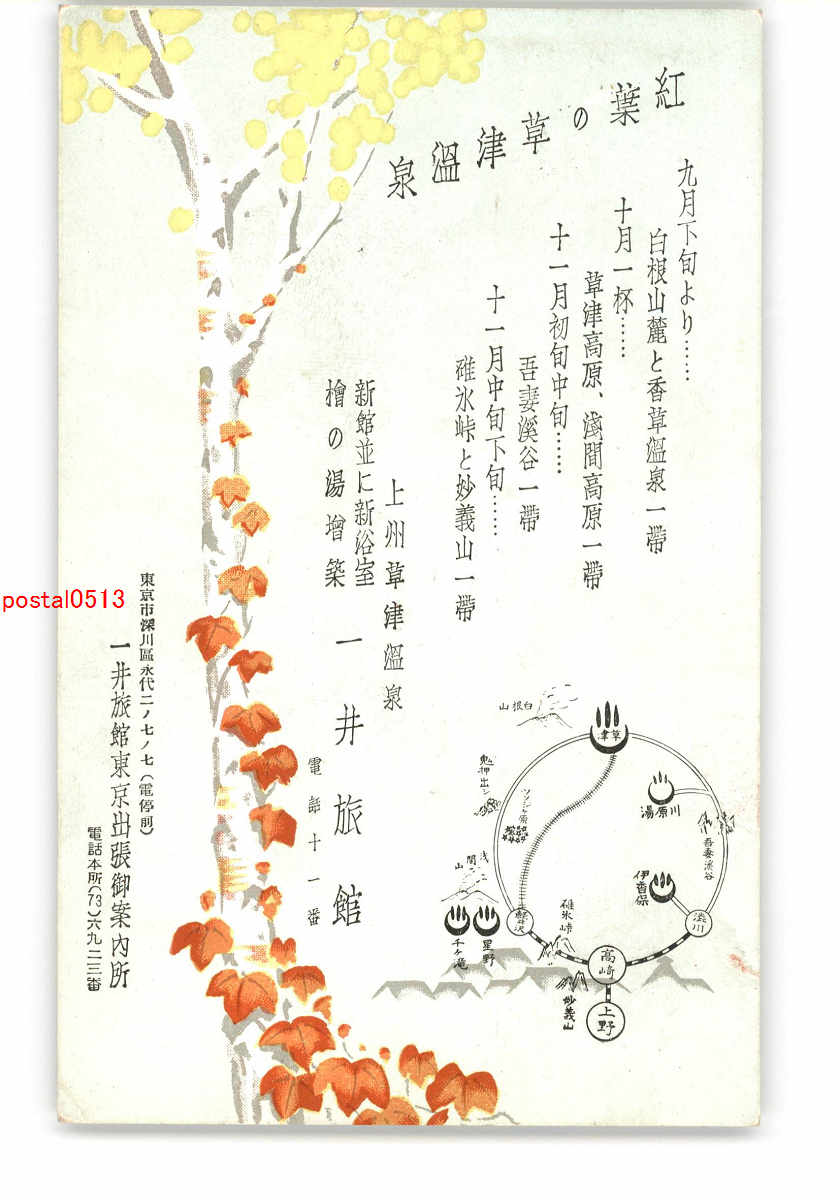 紅葉の草津溫泉
九月下旬より……
白根山麓と香草溫泉一帶
十月一杯……
草津高原、淺間高原一帶
十一月初旬中旬……
吾妻溪谷一帶
十一月中旬下旬……
碓氷峠と妙義山一帶
上州草津溫泉
新館並に新浴室
檜の湯增築
一井旅館
電話十一番
東京市深川區永代二ノ七ノ七(電停前)
一井旅館東京出張御案內所
電話本所(73)六九二三番
白根山
草津
鬼押出シ
川原湯
吾妻渓谷
浅間山
伊香保
軽井沢
碓氷峠
渋川
星野
千ヶ滝
高崎
妙義山
上野
postal0513